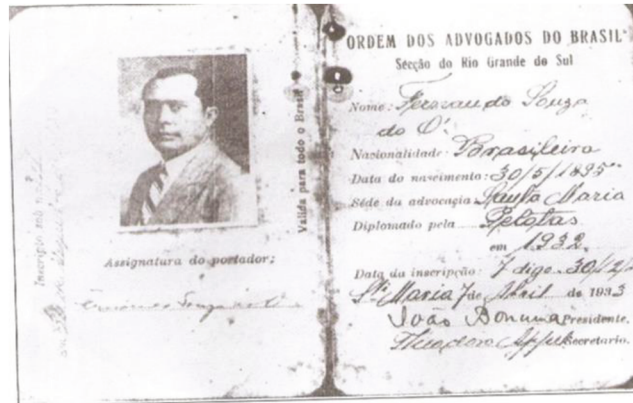 Assignatura do portador:
Valida para todo o Brasil
ORDEM DOS ADVOGADOS DO BRASIL
Secção do Rio Grande do Sul
Nome: Fernando Souza
do Ó.
Nacionalidade: Brasileira
Data do nascimento: 30/5/1895
Séde da advocacia Santa Maria
Diplomado pela Pelotas
em 1932.
Data da inscripção: 7 digo 30/12/
Sta Maria 7 de Abril de 1933
João Bonumá Presidente.
Theodoro Secretario.